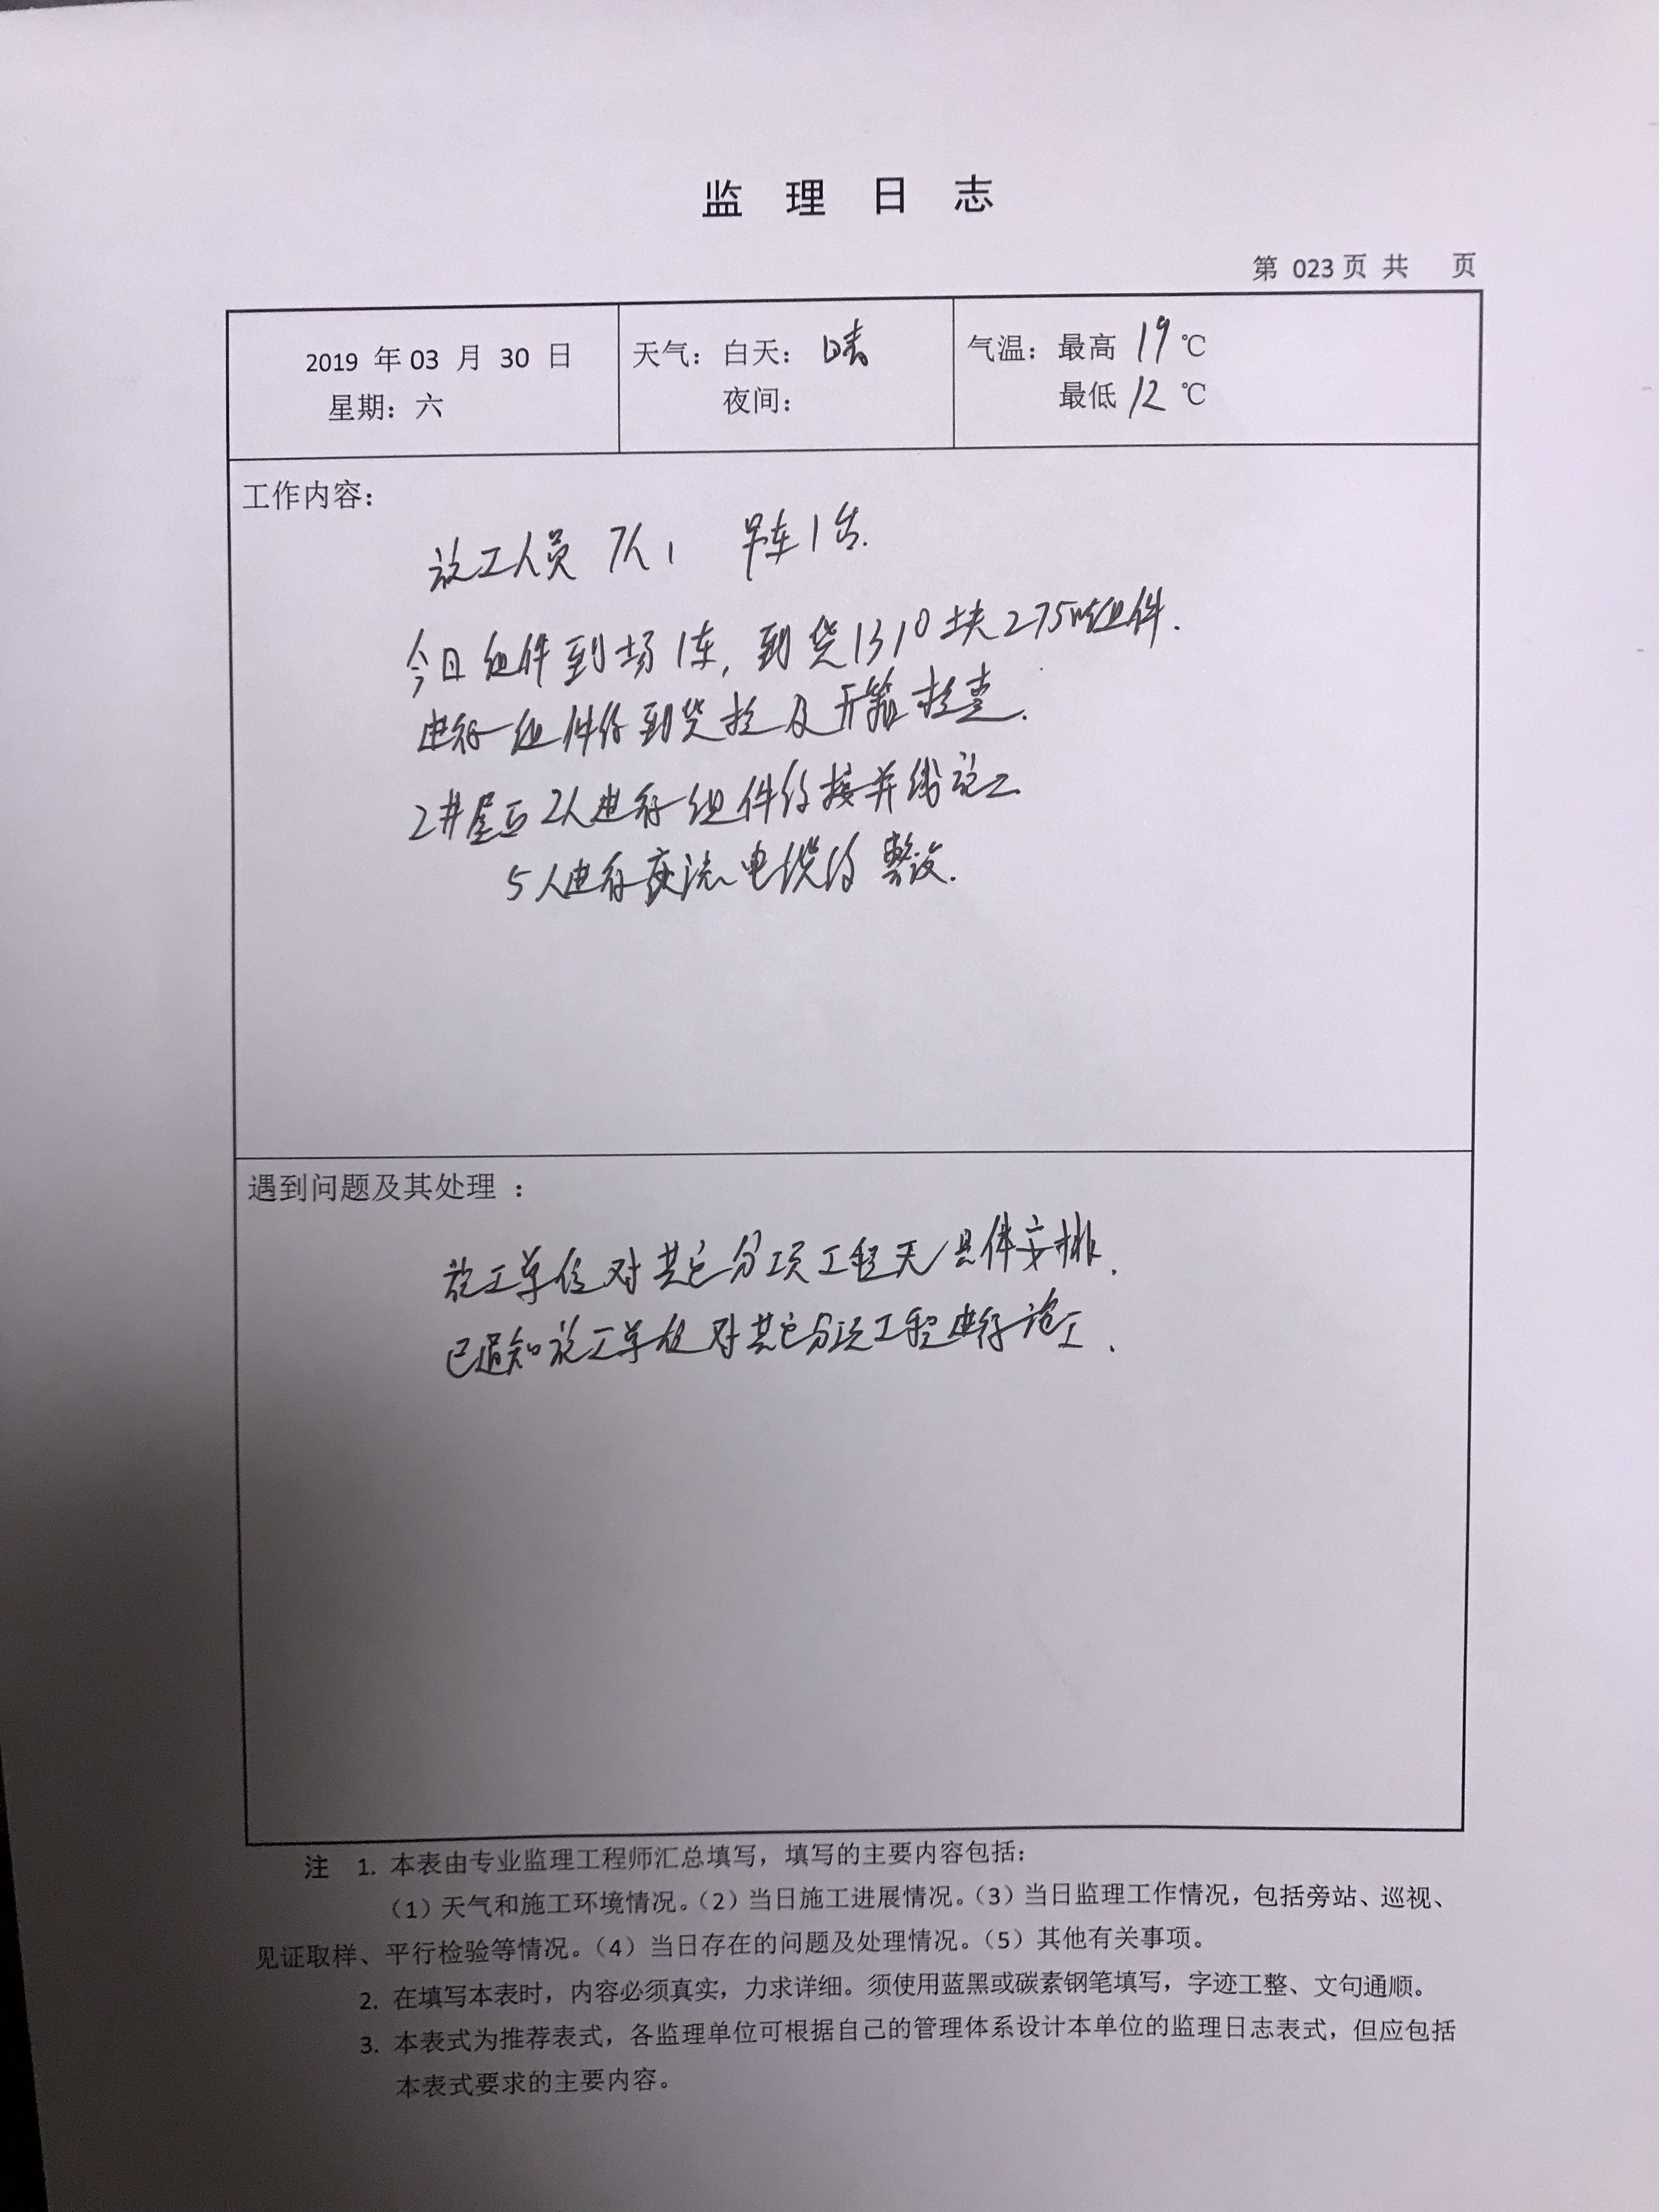 监理日志
第 023 页 共 页
2019 年 03 月 30 日
星期：六
天气：白天：晴
夜间：
气温：最高 19 ℃
最低 12 ℃
工作内容：
施工人员 7人， 吊车1台.
今日组件到场1车, 到货1310块275W组件.
进行组件的到货检及开箱检查.
2#屋面2人进行组件的接并线施工
5人进行交流电缆的敷设.
遇到问题及其处理 ：
施工单位对其它分项工程无具体安排.
已通知施工单位对其它分项工程进行施工.
注 1. 本表由专业监理工程师汇总填写，填写的主要内容包括：
（1）天气和施工环境情况。（2）当日施工进展情况。（3）当日监理工作情况，包括旁站、巡视、
见证取样、平行检验等情况。（4）当日存在的问题及处理情况。（5）其他有关事项。
2. 在填写本表时，内容必须真实，力求详细。须使用蓝黑或碳素钢笔填写，字迹工整、文句通顺。
3. 本表式为推荐表式，各监理单位可根据自己的管理体系设计本单位的监理日志表式，但应包括
本表式要求的主要内容。